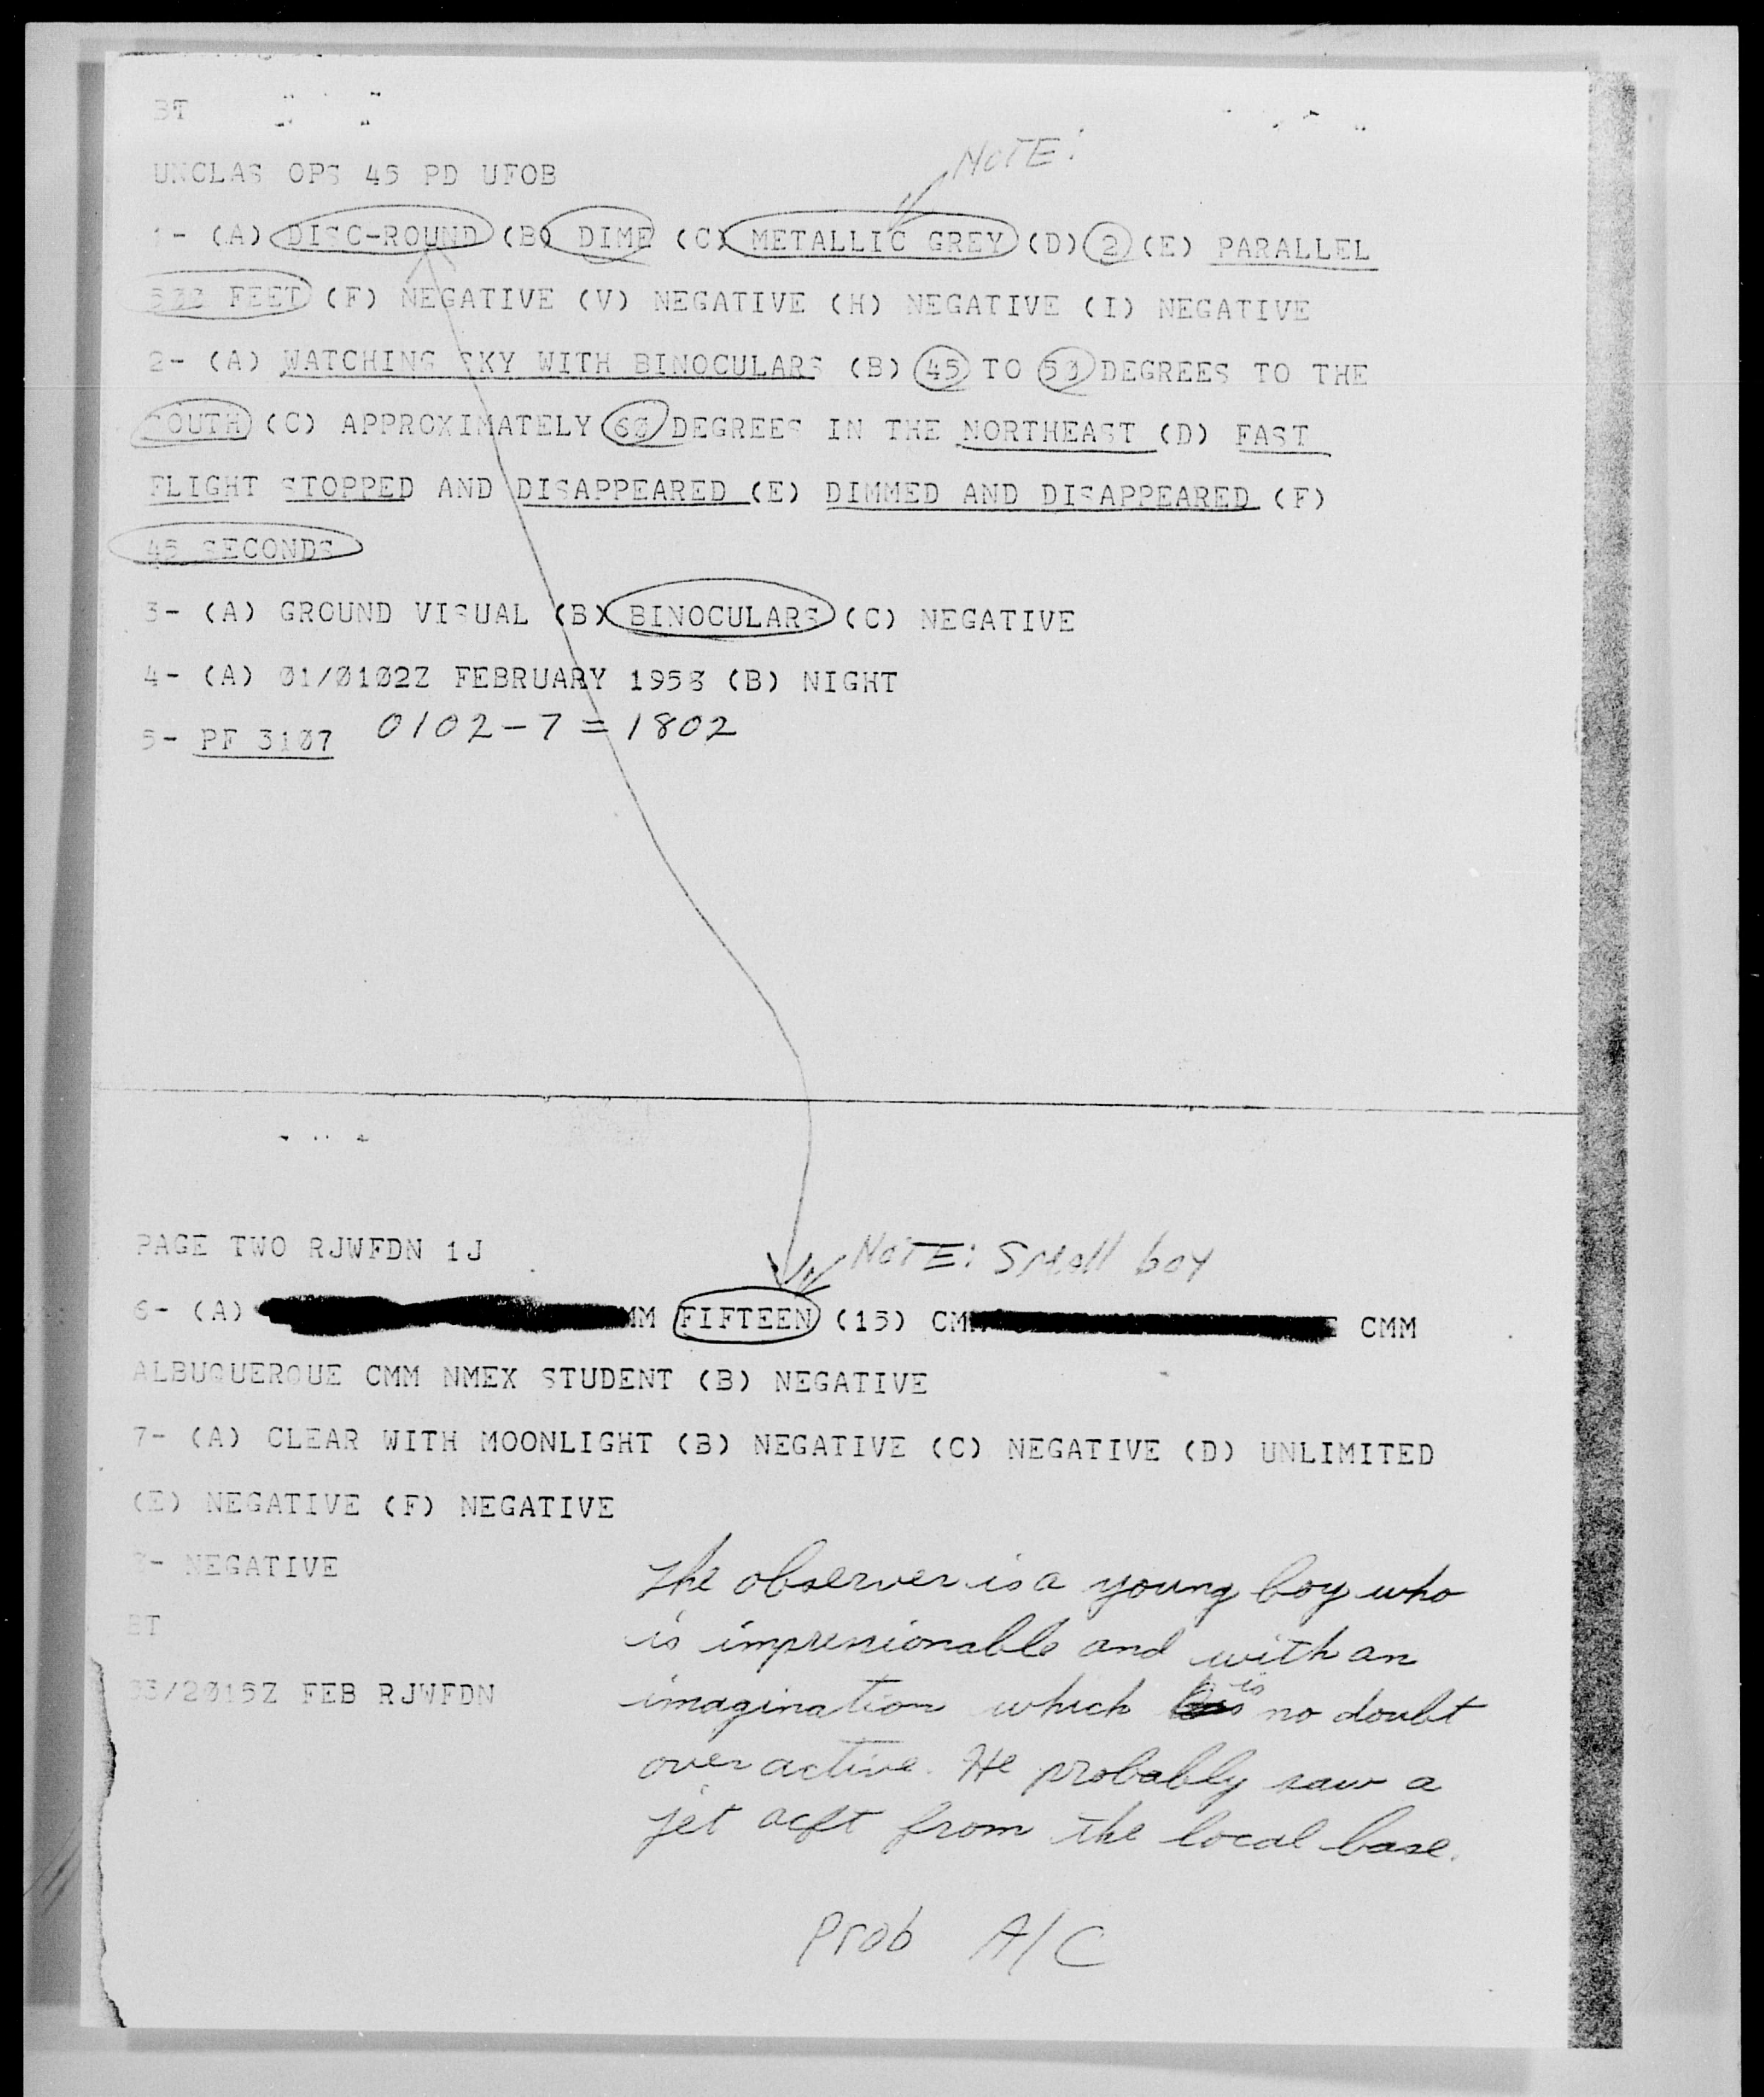 BT
UNCLAS OPS 45 PD UFOB
NOTE:
1- (A) DISC-ROUND (B) DIME (C) METALLIC GREY (D) 2 (E) PARALLEL
FEET (F) NEGATIVE (V) NEGATIVE (H) NEGATIVE (I) NEGATIVE
2- (A) WATCHING SKY WITH BINOCULARS (B) 45 TO DEGREES TO THE
SOUTH (C) APPROXIMATELY 60 DEGREES IN THE NORTHEAST (D) FAST
FLIGHT STOPPED AND DISAPPEARED (E) DIMMED AND DISAPPEARED (F)
45 SECONDS
3- (A) GROUND VISUAL (B) BINOCULARS (C) NEGATIVE
4- (A) 01/0102Z FEBRUARY 1958 (B) NIGHT
5- PF 3107 0102-7=1802
PAGE TWO RJWFDN 1J
NOTE: Small boy
6- (A) MM FIFTEEN (15) CM CMM
ALBUQUERQUE CMM NMEX STUDENT (B) NEGATIVE
7- (A) CLEAR WITH MOONLIGHT (B) NEGATIVE (C) NEGATIVE (D) UNLIMITED
(E) NEGATIVE (F) NEGATIVE
- NEGATIVE
BT
/2015Z FEB RJWFDN
The observer is a young boy who
is impressionable and with an
imagination which is no doubt
over active. He probably saw a
jet acft from the local base.
Prob A/C